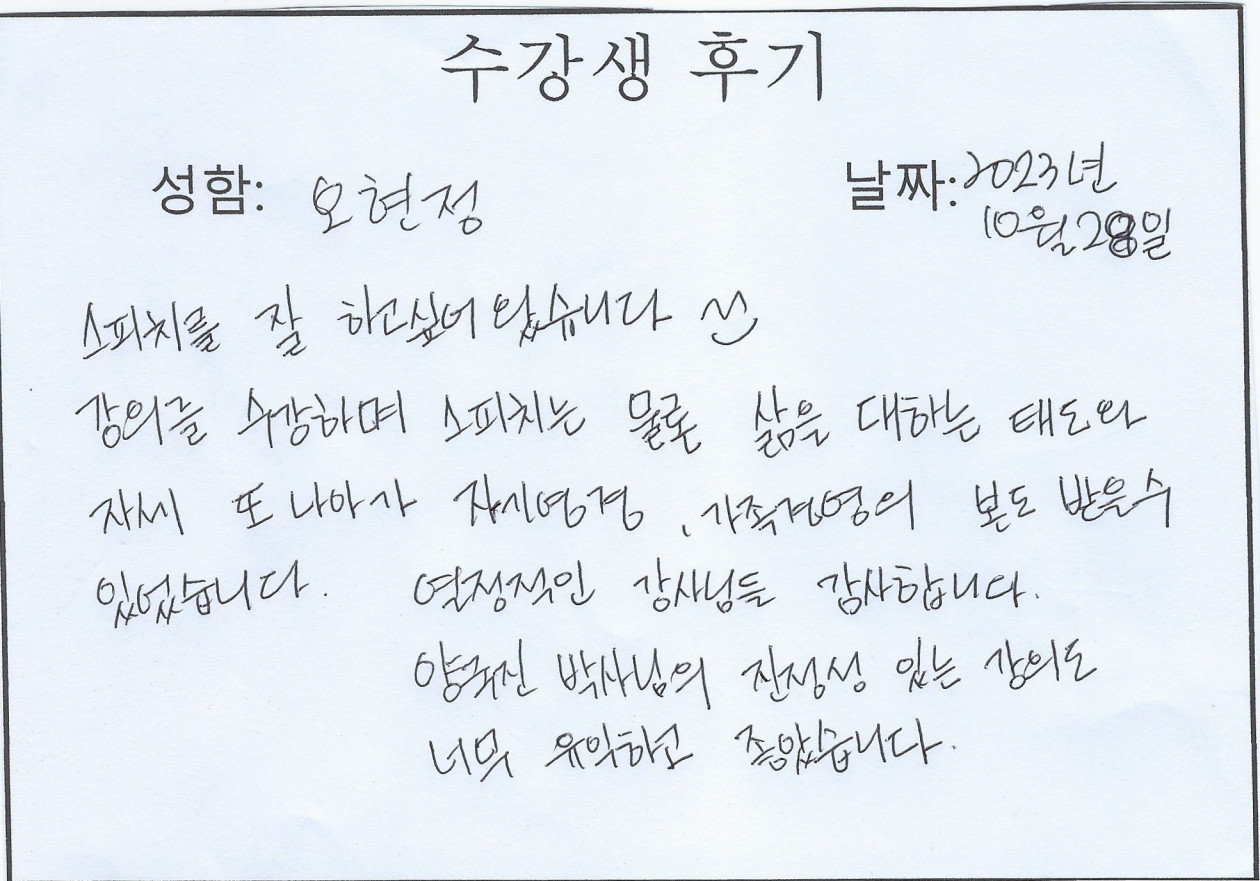 수강생 후기
성함: 오현정
날짜: 2023년
10월 28일
스피치를 잘 하고싶어 왔습니다
강의를 수강하며 스피치는 물론 삶을 대하는 태도와
자세 또 나아가 자기경영, 가족경영의 본도 받을수
있었습니다. 열정적인 강사님들 감사합니다.
양국진 박사님의 진정성 있는 강의도
너무 유익하고 좋았습니다.